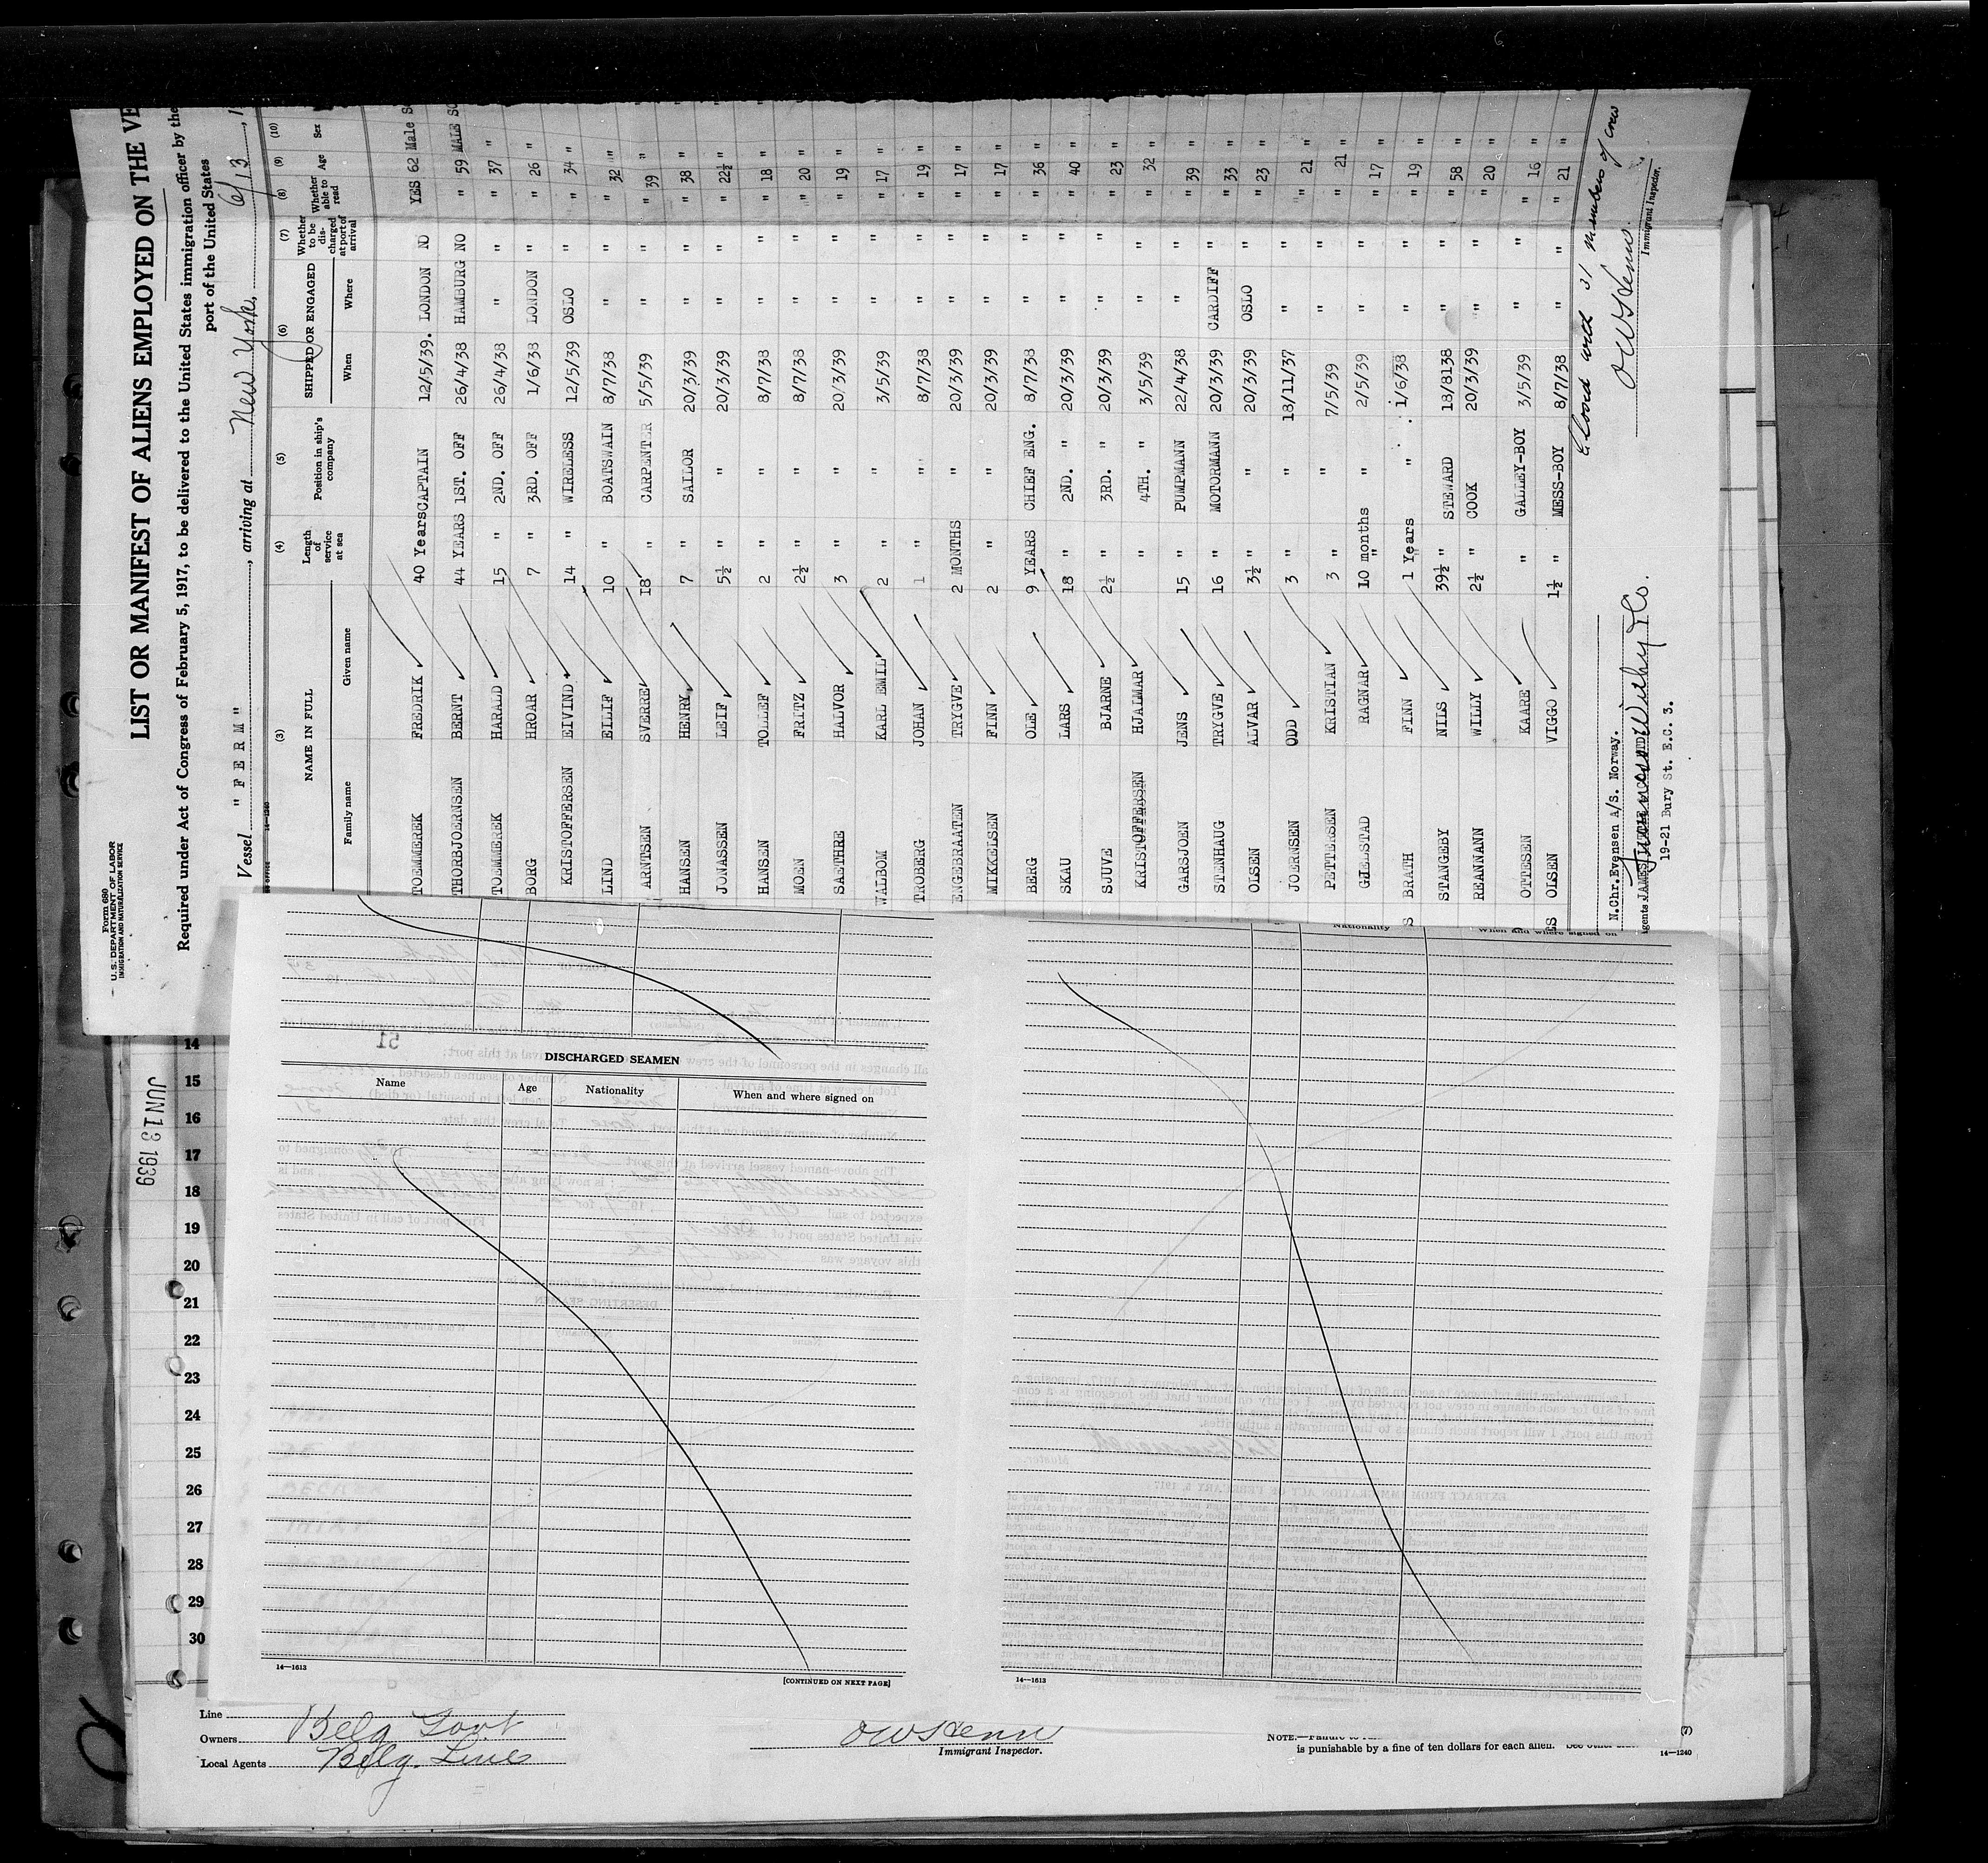 Form 680
U.S. DEPARTMENT OF LABOR
IMMIGRATION AND NATURALIZATION SERVICE
LIST OR MANIFEST OF ALIENS EMPLOYED ON THE VE
Required under Act of Congress of February 5, 1917, to be delivered to the United States immigration officer by the
port of the United States
Vessel "FERM", arriving at New York, 6/13, 1
14—1240
(3) (4) (5) (6) (7) (8) (9) (10)
NAME IN FULL Length of service at sea Position in ship's company SHIPPED OR ENGAGED Whether to be discharged at port of arrival Whether able to read Age Sex
Family name Given name When Where
TOEMMEREK FREDRIK 40 Years CAPTAIN 12/5/39. LONDON NO YES 62 Male
THORBJOERNSEN BERNT 44 YEARS 1ST. OFF 26/4/38 HAMBURG NO " 59 MALE
TOEMMEREK HARALD 15 " 2ND. OFF 26/4/38 " " " 37 "
BORG HROAR 7 " 3RD. OFF 1/6/38 LONDON " " 26 "
KRISTOFFERSEN EIVIND 14 " WIRELESS 12/5/39 OSLO " " 34 "
LIND EILIF 10 " BOATSWAIN 8/7/38 " " " 32 "
ARNTSEN SVERRE 18 " CARPENTER 5/5/39 " " " 39 "
HANSEN HENRY 7 " SAILOR 20/3/39 " " " 38 "
JONASSEN LEIF 5½ " " 20/3/39 " " " 22½ "
HANSEN TOLLEF 2 " " 8/7/38 " " " 18 "
MOEN FRITZ 2½ " " 8/7/38 " " " 20 "
SAETHRE HALVOR 3 " " 20/3/39 " " " 19 "
WALBOM KARL EMIL 2 " " 3/5/39 " " " 17 "
TROBERG JOHAN 1 " " 8/7/38 " " " 19 "
ENGEBRAATEN TRYGVE 2 MONTHS " 20/3/39 " " " 17 "
MIKKELSEN FINN 2 " " 20/3/39 " " " 17 "
BERG OLE 9 YEARS CHIEF ENG. 8/7/38 " " " 36 "
SKAU LARS 18 " 2ND. " 20/3/39 " " " 40 "
SJUVE BJARNE 2½ " 3RD. " 20/3/39 " " " 23 "
KRISTOFFERSEN HJALMAR " 4TH. " 3/5/39 " " " 32 "
GARSJOEN JENS 15 " PUMPMANN 22/4/38 " " " 39 "
STENHAUG TRYGVE 16 " MOTORMANN 20/3/39 CARDIFF " " 33 "
OLSEN ALVAR 3½ " " 20/3/39 OSLO " " 23 "
JOERNSEN ODD 3 " " 18/11/37 " " " 21 "
PETTERSEN KRISTIAN 3 " " 7/5/39 " " " 21 "
GJELSTAD RAGNAR 10 months " 2/5/39 " " " 17 "
BRATH FINN 1 Years " 1/6/38 " " " 19 "
STANGEBY NILS 39½ " STEWARD 18/8138 " " " 58 "
REANNANN WILLY 2½ " COOK 20/3/39 " " " 20 "
OTTESEN KAARE " GALLEY-BOY 3/5/39 " " " 16 "
OLSEN VIGGO 1½ " MESS-BOY 8/7/38 " " " 21 "
Closed with 31 members of crew
Immigrant Inspector.
N.Chr.Evensen A/S. Norway.
19-21 Bury St. E.C. 3.
Nationality
When and where signed on
JUN 13 1939
14
15
16
17
18
19
20
21
22
23
24
25
26
27
28
29
30
51
DISCHARGED SEAMEN
Name Age Nationality When and where signed on
14—1613
[CONTINUED ON NEXT PAGE]
14—1613
Line
Owners Belg Govt
Local Agents Belg. Lines
Immigrant Inspector.
NOTE.—Failure to
is punishable by a fine of ten dollars for each alien.
14—1240
(7)